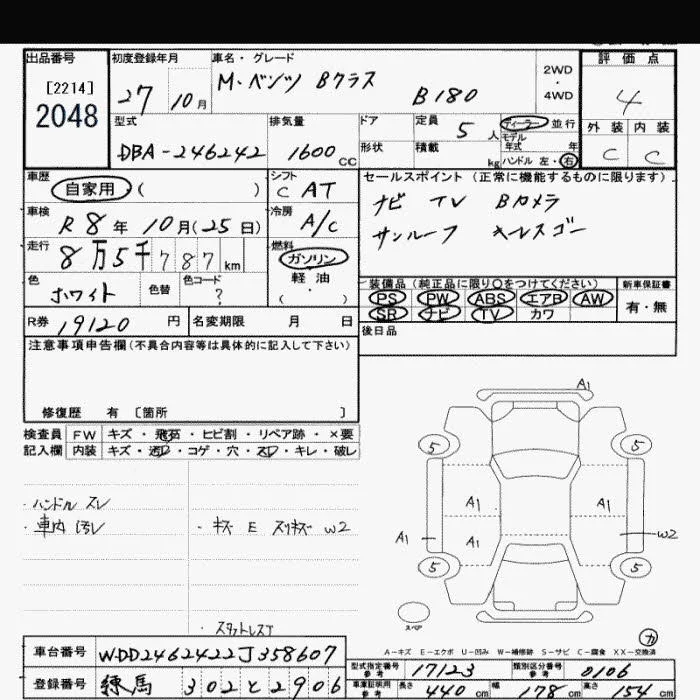 出品番号
[2214]
2048
初度登録年月
27 10月
車名・グレード
M・ベンツ Bクラス
B180
2WD
・
4WD
評価点
4
型式
DBA-246242
排気量
1600 CC
ドア
形状
定員
5人
積載
kg
ディーラー 並行
モデル
年式 年
ハンドル 左・右
外装 内装
C C
車歴
自家用 ( )
シフト
C AT
セールスポイント (正常に機能するものに限ります)
ナビ TV Bカメラ
サンルーフ キーレスゴー
車検
R8年10月(25日)
冷房
A/C
走行
8万5千787km
燃料
ガソリン
軽油
( )
色
ホワイト
色替
色コード
?
装備品 (純正品に限り○をつけてください)
PS PW ABS エアB AW
SR ナビ TV カワ
新車保証書
有・無
R券 19120 円
名変期限 月 日
後日品
注意事項申告欄(不具合内容等は具体的に記入して下さい)
修復歴 有 [箇所 ]
検査員 FW キズ・飛石・ヒビ割・リペア跡・×要
記入欄 内装 キズ・汚レ・コゲ・穴・スレ・キレ・破レ
・ハンドル スレ
・車内 汚レ
・キズ E スリキズ W2
・スタットレス
A1
5 5
A1 A1
A1 A1 W2
5 5
スペア
カ
A-キズ E-エクボ U-凹み W-補修跡 S-サビ C-腐食 XX-交換済
車台番号 WDD2462422J358607
登録番号 練馬 302と2906
型式指定番号
参考
17123
類別区分番号
参考
0106
車庫証明用
参考
長さ 440 cm 幅 178 cm 高さ 154 cm